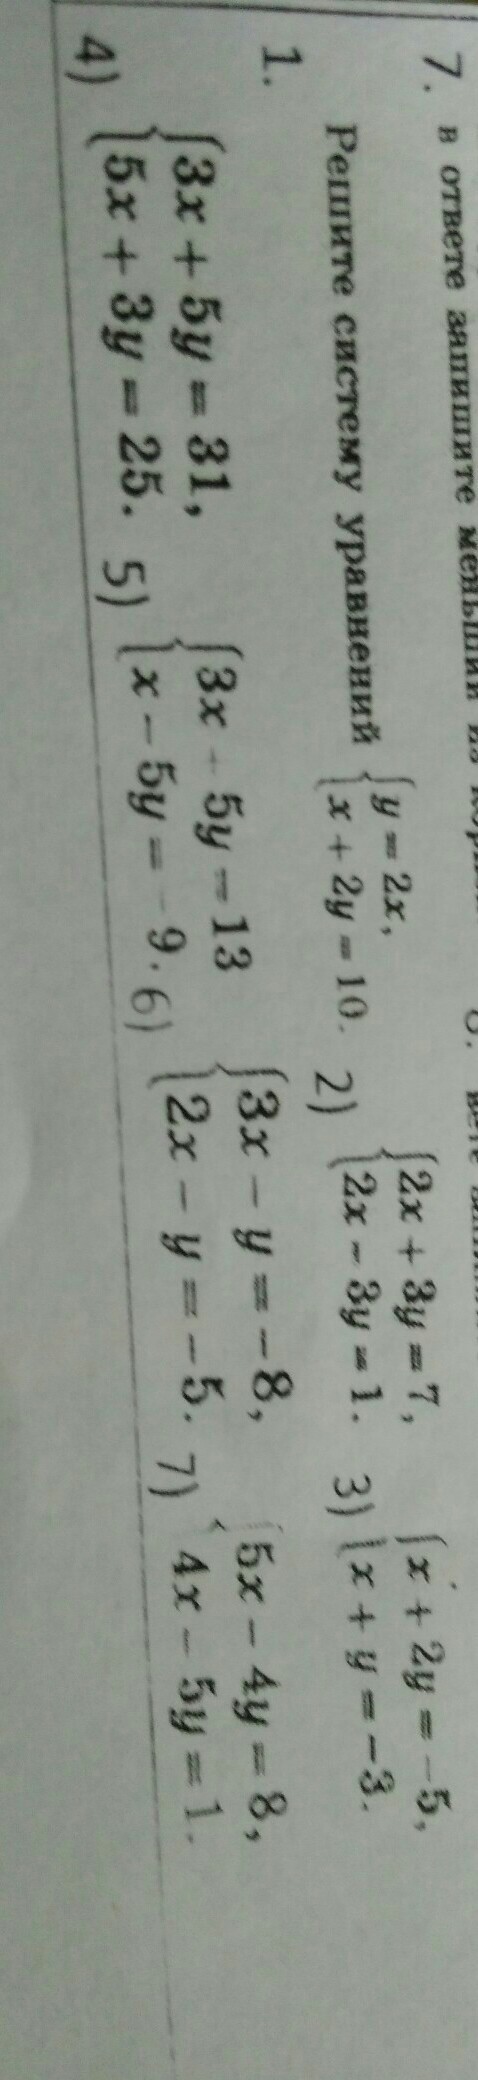 7. в ответе запишите меньший из
1. Решите систему уравнений { y = 2x, x + 2y = 10. 2) { 2x + 3y = 7, 2x - 3y = 1. 3) { x + 2y = -5, x + y = -3.
4) { 3x + 5y = 31, 5x + 3y = 25. 5) { 3x - 5y = 13 x - 5y = -9. 6) { 3x - y = -8, 2x - y = -5. 7) { 5x - 4y = 8, 4x - 5y = 1.